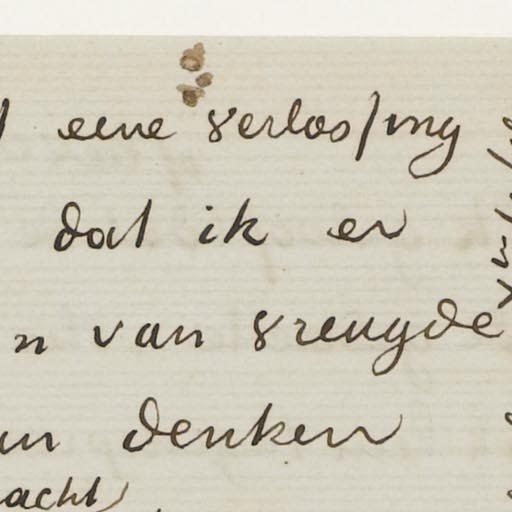 eene verlossing
dat ik er
n van vreugde
denken
acht